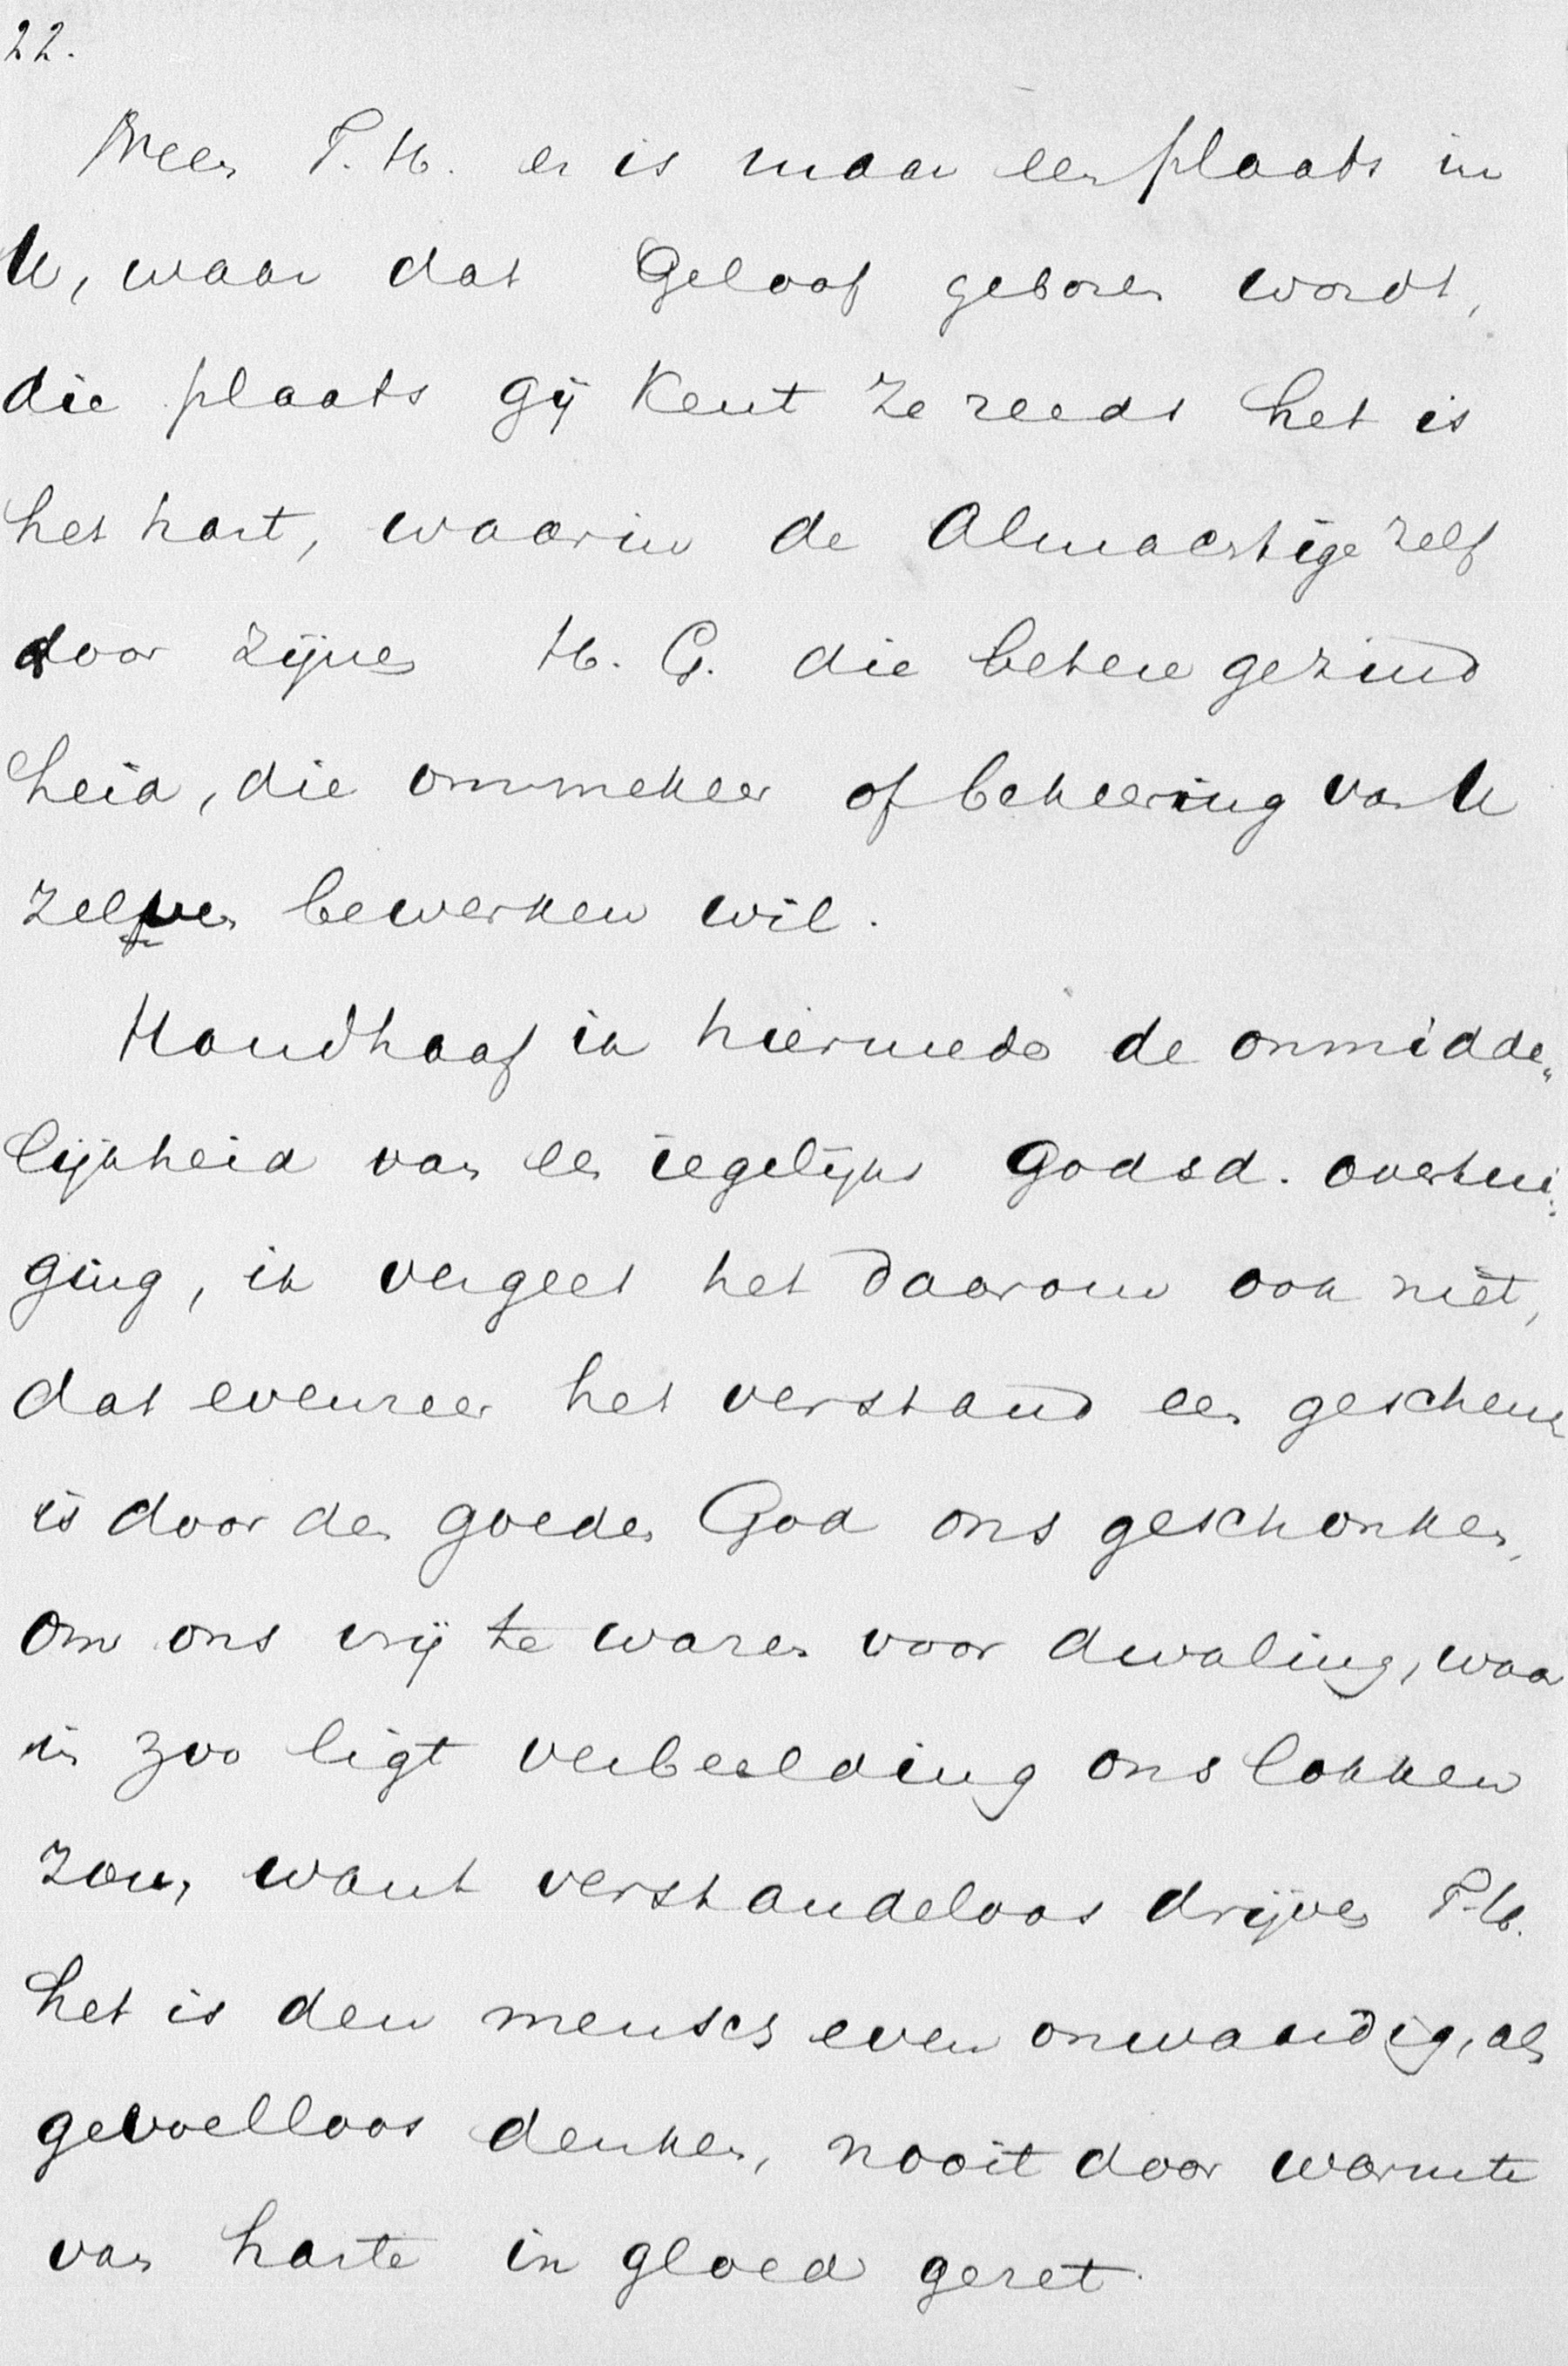 22.
Neen T. H. er is maar een plaats in
U, waar dat Geloof geboren wordt,
die plaats gij kent ze reeds het is
het hart, waarin de Almachtige zelf
door zijnen H. G. die betere gezind
heid, die ommekeer of bekeering van U
zelven bewerken wil.
Handhaaf ik hiermede de onmidde„
lijkheid van een iegelijks Godsd. overtui:
ging, ik vergeet het daarom ook niet,
dat evenzeer het verstand een geschenk
is door den goeden God ons geschonken,
om ons vrij te waren voor dwaling, waar
in zoo ligt verbeelding ons lokken
zou, want verstandeloos drijven T. H.
het is den mensch even onwaardig, als
gevoelloos denken, nooit door warmte
van harte in gloed gezet.